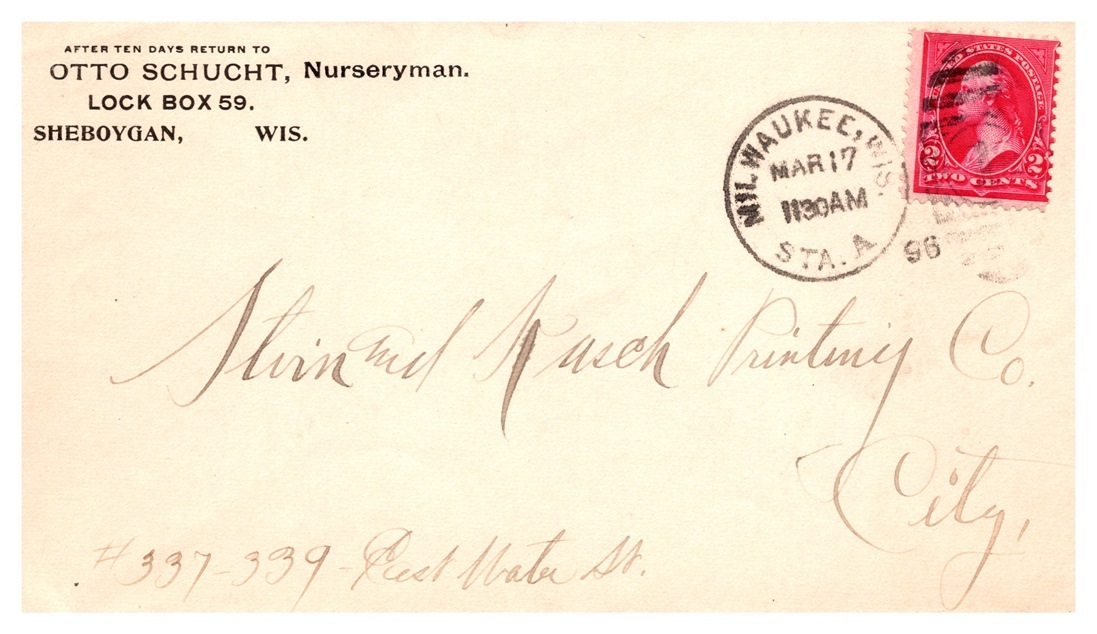 AFTER TEN DAYS RETURN TO
OTTO SCHUCHT, Nurseryman.
LOCK BOX 59.
SHEBOYGAN, WIS.
MILWAUKEE, WIS.
MAR 17
1130AM
STA. A
96
UNITED STATES POSTAGE
2 2
TWO CENTS
and Printing Co.
City,
#337-339-East Water St.